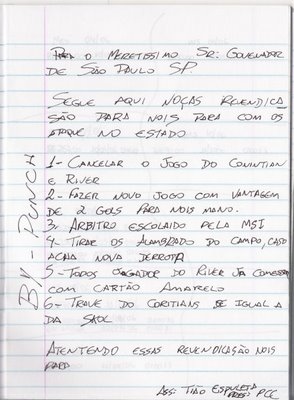 Para o Meretissimo Sr: Governador
de São Paulo SP.
Segue aqui noças reendica
são para nois para com os
atake no estado
1- Cancelar o jogo do Corintian
e River
2- Fazer novo jogo com vantagem
de 2 gols para nois mano.
3. Arbitro escolaido pela MSI
4- Tirar os alambrado do campo, caso
acha nova derrota
5- Todos jogador do River já começa
com cartão amarelo
6- Trave do Coritians se igual a
da Skol
Atentendo essas revendicação nois
para
Ass: Tião Espuleta
Pres: PCC
By-Punch